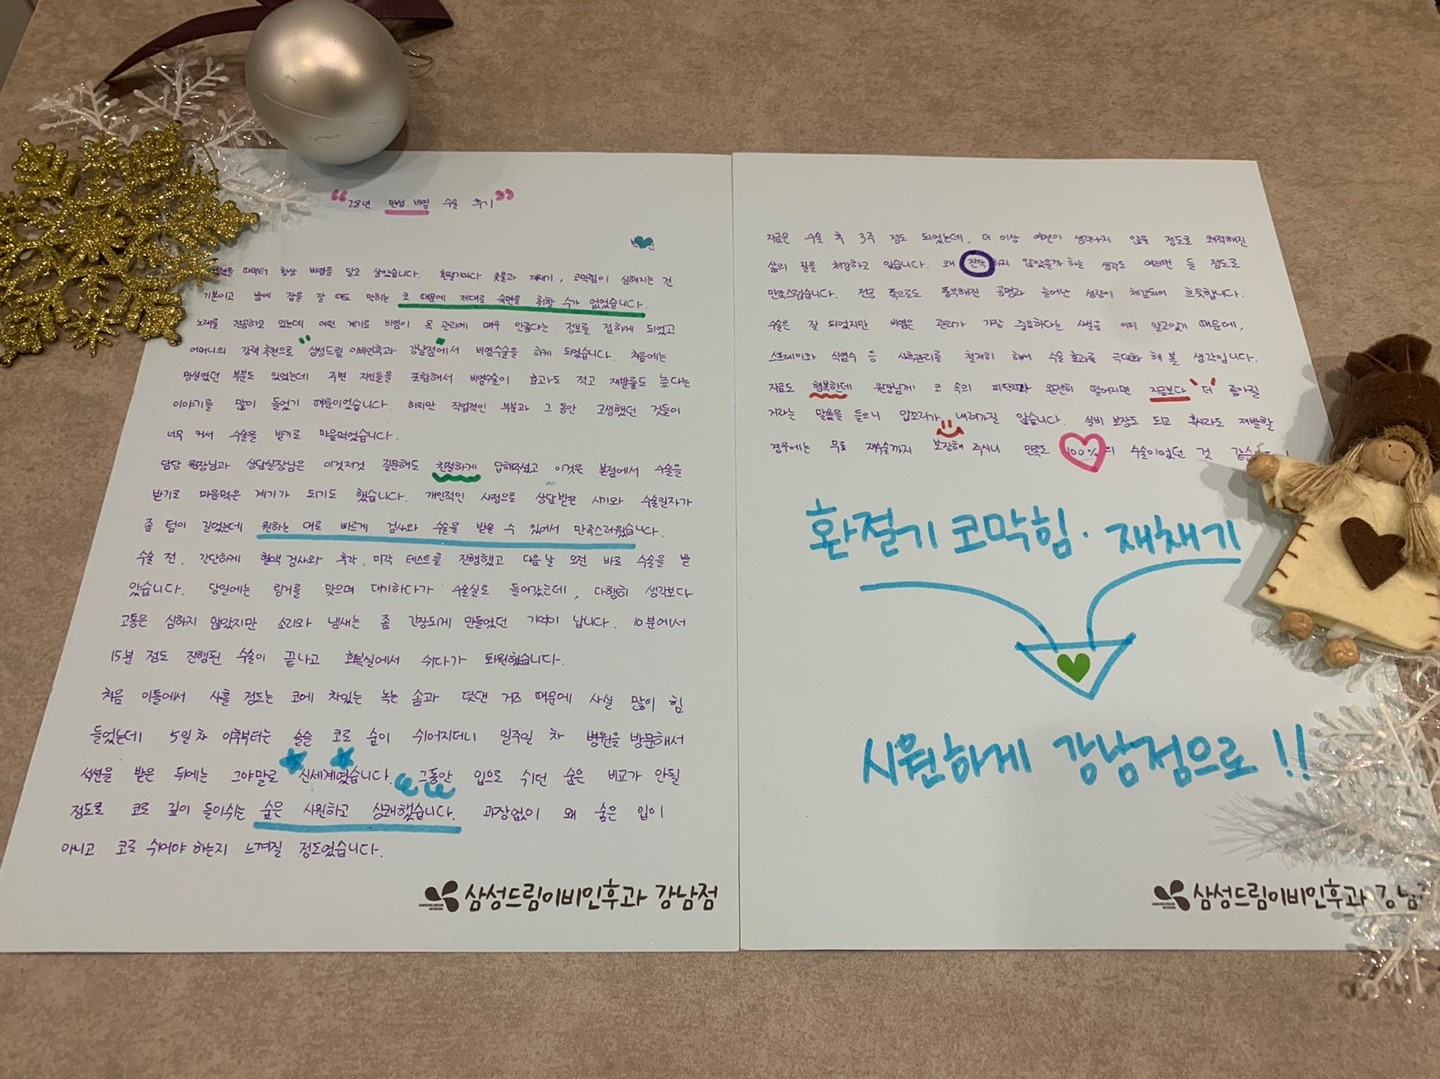 "28년 만성 비염 수술 후기"
때부터 항상 비염을 달고 살았습니다. 환절기마다 콧물과 재채기, 코막힘이 심해지는 건
기본이고 밤에 잠을 잘 때도 막히는 코 때문에 제대로 숙면을 취할 수가 없었습니다.
노래를 전공하고 있는데 어떤 계기로 비염이 목 관리에 매우 안좋다는 정보를 접하게 되었고
어머니의 강력 추천으로 "삼성드림 이비인후과 강남점"에서 비염수술을 하게 되었습니다. 처음에는
망설였던 부분도 있었는데 주변 지인들을 포함해서 비염수술이 효과도 적고 재발률도 높다는
이야기를 많이 들었기 때문이었습니다. 하지만 직업적인 부분과 그 동안 고생했던 것들이
너무 커서 수술을 받기로 마음먹었습니다.
담당 원장님과 상담실장님은 이것저것 질문해도 친절하게 답해주셨고 이것은 본점에서 수술을
받기로 마음먹은 계기가 되기도 했습니다. 개인적인 사정으로 상담받은 시기와 수술일자가
좀 텀이 길었는데 원하는 대로 빠르게 검사와 수술을 받을 수 있어서 만족스러웠습니다.
수술 전, 간단하게 혈액 검사와 후각, 미각 테스트를 진행했고 다음 날 오전 바로 수술을 받
았습니다. 당일에는 링거를 맞으며 대기하다가 수술실로 들어갔는데, 다행히 생각보다
고통은 심하지 않았지만 소리와 냄새는 좀 긴장되게 만들었던 기억이 납니다. 10분에서
15분 정도 진행된 수술이 끝나고 회복실에서 쉬다가 퇴원했습니다.
처음 이틀에서 사흘 정도는 코에 차있는 녹는 솜과 덧댄 거즈 때문에 사실 많이 힘
들었는데 5일 차 이후부터는 슬슬 코로 숨이 쉬어지더니 일주일 차 병원을 방문해서
석션을 받은 뒤에는 그야말로 신세계였습니다. 그동안 입으로 쉬던 숨은 비교가 안될
정도로 코로 깊이 들이쉬는 숨은 시원하고 상쾌했습니다. 과장없이 왜 숨은 입이
아니고 코로 쉬어야 하는지 느껴질 정도였습니다.
삼성드림이비인후과 강남점
지금은 수술 후 3주 정도 되었는데, 더 이상 예전이 생각나지 않을 정도로 쾌적해진
삶의 질을 체감하고 있습니다. 왜 진작 하지 않았을까 하는 생각도 여러번 들 정도로
만족스럽습니다. 전공 쪽으로도 풍부해진 공명과 늘어난 성량이 체감되어 흐뭇합니다.
수술은 잘 되었지만 비염은 관리가 가장 중요하다는 사실을 이미 알고있기 때문에,
스프레이와 식염수 등 사후관리를 철저히 해서 수술 효과를 극대화 해 볼 생각입니다.
지금도 행복한데 원장님께 코 속의 피딱지가 완전히 떨어지면 지금보다 "더" 좋아질
거라는 말씀을 들으니 입꼬리가 내려가질 않습니다. 실비 보장도 되고 혹시라도 재발할
경우에는 무료 재수술까지 보장해 주시니 만족도 100%의 수술이었던 것 같습니다
환절기 코막힘·재채기
시원하게 강남점으로!!
삼성드림이비인후과 강남